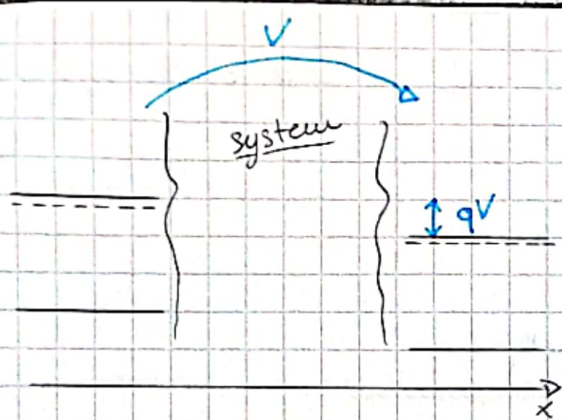 V
system
qV
x